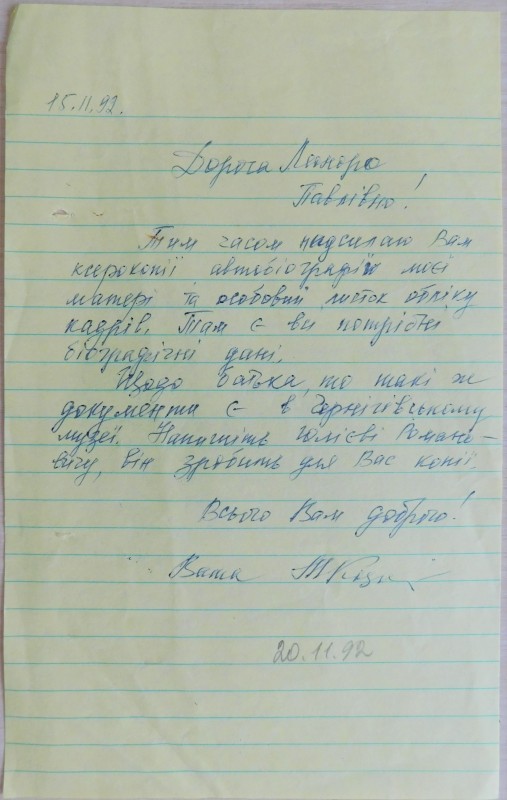 15.11.92.
Дорога Леноро
Павлівно!
Тим часом надсилаю Вам
ксерокопії автобіографій моєї
матері та особовий листок обліку
кадрів. Там є всі потрібні
біографічні дані.
Щодо батька, то такі ж
документи є в Чернігівському
музеї. Напишіть Юлієві Романо-
вичу, він зробить для Вас копії.
Всього Вам доброго!
Ваша
20.11.92